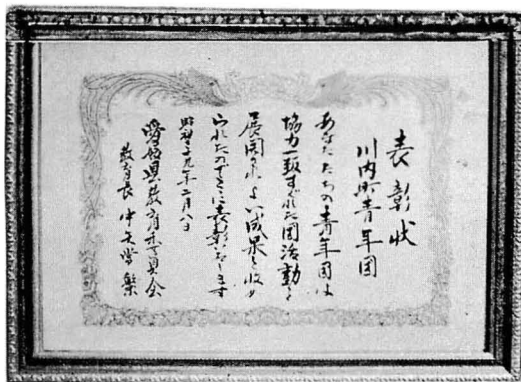 表彰状
川内町青年団
あなたたちの青年団は
協力一致すぐれた団活動を
展開されよい成果を収め
られたのでここに表彰いたします
昭和三十九年二月八日
愛媛県教育委員会
教育長